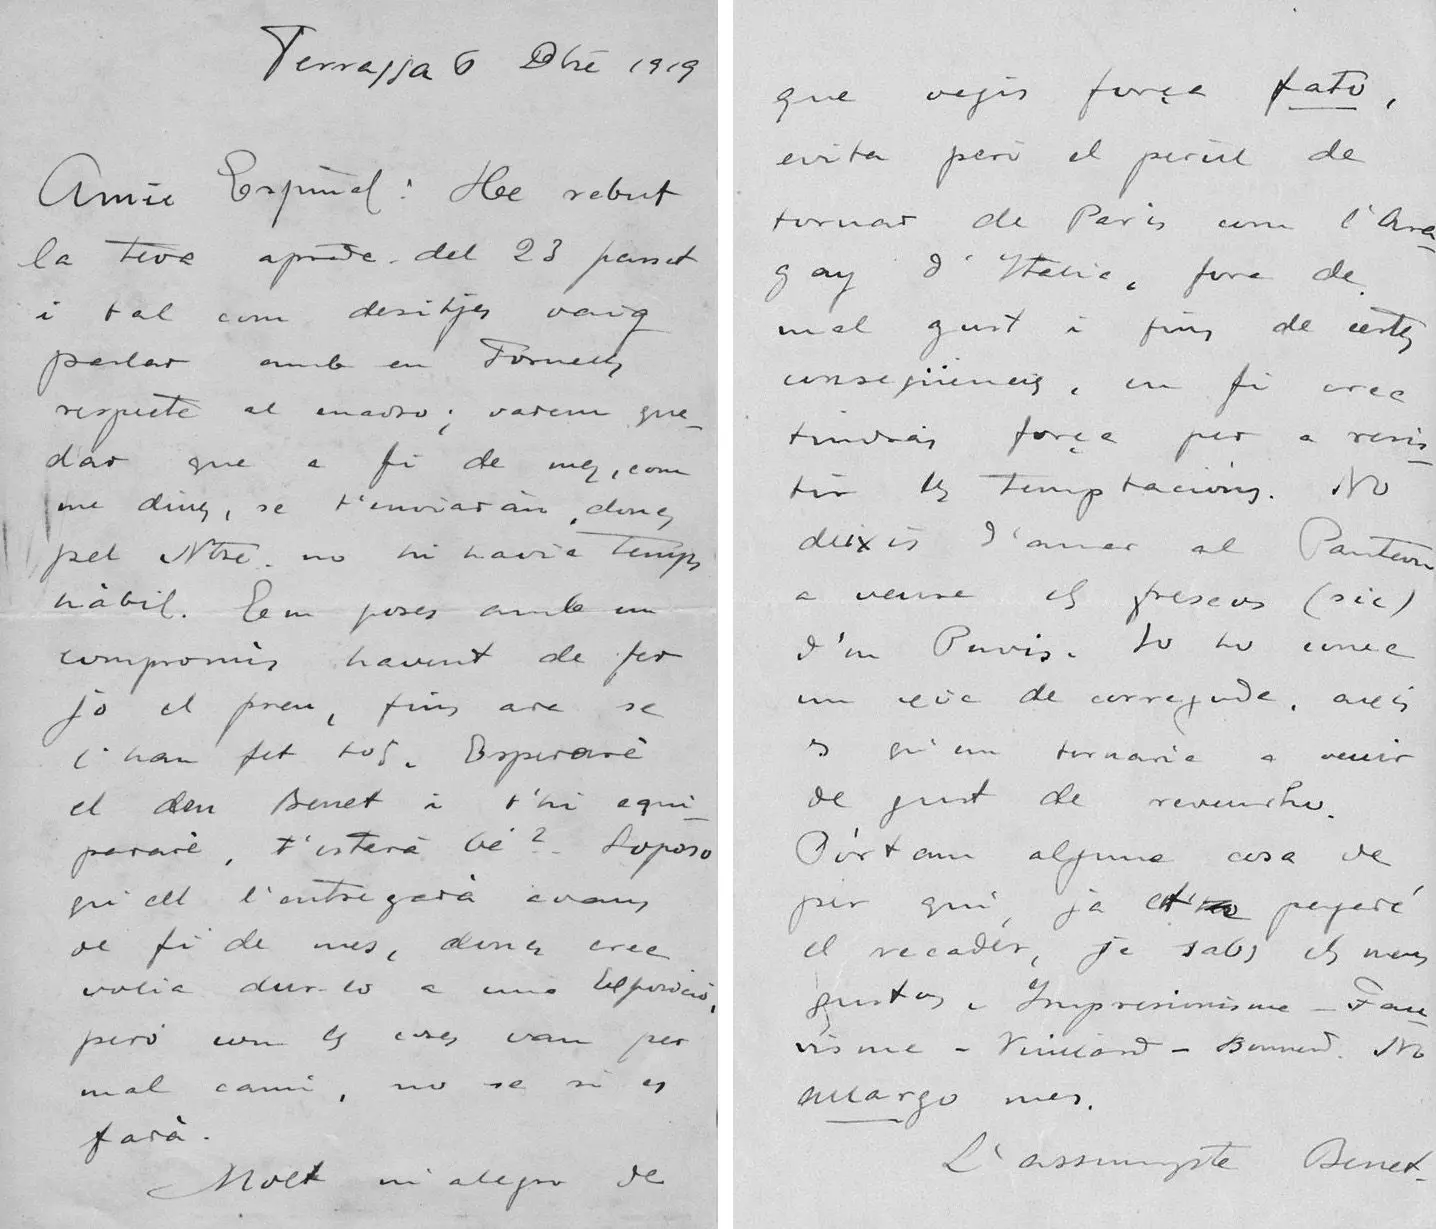 Terrassa 6 Dbre 1919
Amic Espinal: He rebut
la teva apreda. del 23 passat
i tal com desitjes vaig
parlar amb en Fornells
respecte al marso; varem que-
dar que a fi de mes, com
me dius, se t'enviaràn, doncs
pel Nbre. no hi havia temps
hàbil. Em poses amb un
compromis havent de fer
jo el preu, fins ara se
l'han fet tos. Esperaré
el den Benet i t'hi equi-
pararé, t'estarà bé? Soposo
qu'ell l'entregarà avans
de fi de mes, doncs crec
volia dur-lo a una Exposició,
però com les coses van per
mal cami, no se si es
farà.
Molt m'alegro de
que vegis força fato,
evita però el perill de
tornar de Paris com l'Ara-
gay d'Italia, fora de
mal gust i fins de certes
conseqüencies, en fi crec
tindras força per a resis-
tir les temptacións. No
deixis d'anar al Panteon
a veure els frescos (sic)
d'en Puvis. Jo ho conec
un xic de correguda, axis
es qu'em tornaria a venir
de gust de reveurho.
Pòrtam alguna cosa de
per qui, ja et pagaré
el recader, ja sabs els meus
gustos, Impresionisme - Fau-
visme - Vuillard - Bonnard. No
allargo mes.
L'assumpte Benet-